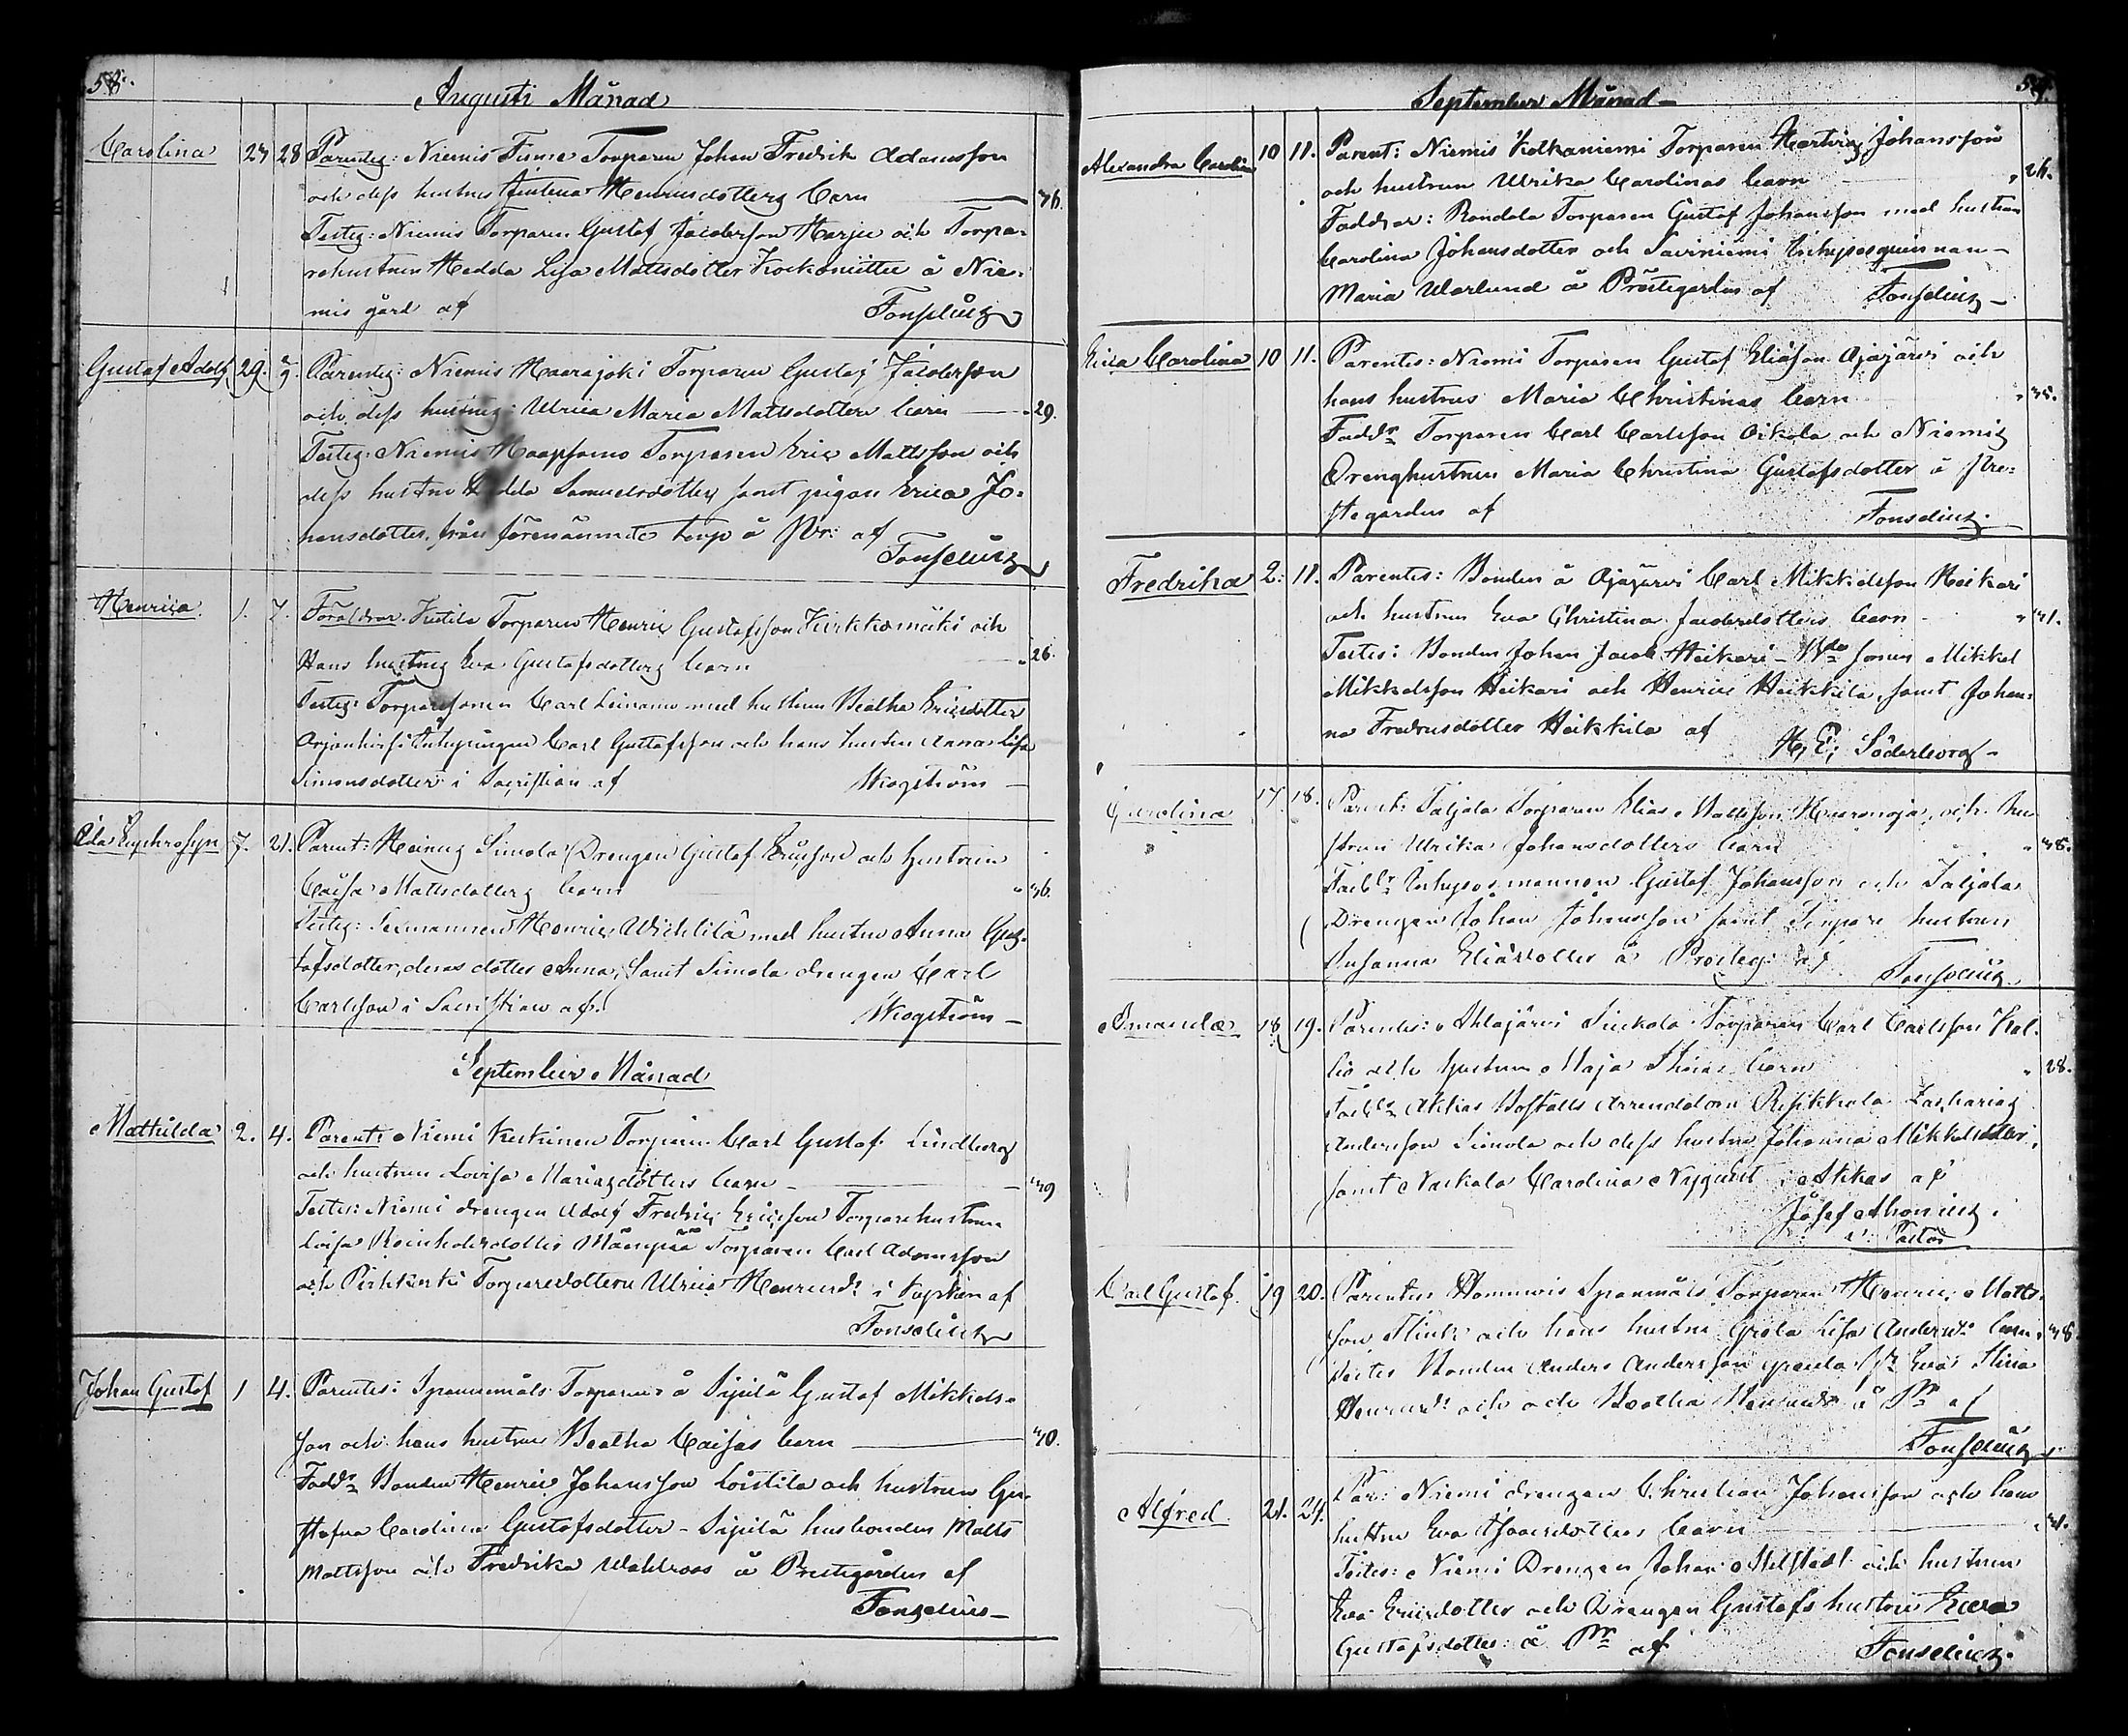 58.
Augusti Månad
Carolina 27 28 Parentes: Niemis Torparen Johan Fredrik Adamsson
och dess hustrus Henricsdotters barn — 36.
Testes: Niemis Torparen Gustaf Jacobsson Harju och Torpa-
rehustrun Hedda Lisa Mattsdotter å Nie-
mis gård af Fonselius
Gustaf Adolf 29. Parentes: Niemis Haarajoki Torparen Gustaf Jacobsson
och dess hustrus Ulrica Maria Mattsdotters barn — 29.
Testes: Niemis Torparen Eric Mattsson och
dess hustru Hedda Samuelsdotter samt pigan Erica Jo-
hansdotter från förenämnde torp å Pr: af
Fonselius
Henrica 1. 7. Föräldrar. Torparen Henric Gustafsson Kirkkomäki och
Hans hustrus Eva Gustafsdotters barn — 26.
Testes: Torparesonen Carl med hustrun Beatha Ericsdotter
Inhysingen Carl Gustafsson och hans hustru Anna Lisa
Simonsdotter i Sacristian af Skogström —
Ida Euphrosyn 7. 21. Parent: Simola Drengen Gustaf Ericsson och hustrun
Caisa Mattsdotters barn 36.
Testes: Henric med hustru Anna Gus-
tafsdotter, deras dotter Anna, samt Simola drengen Carl
Carlsson i Sacristian af Skogström —
September Månad
Mathilda 2. 4. Parent: Niemi Keskinen Torparen Carl Gustaf Lindberg
och hustrun Lovisa Mariasdotters barn — 39
Testes: Niemi drengen Adolf Fredric Ericsson Torparehustrun
Lovisa Reinholdsdotter Mäenpää Torparen Carl Adamsson
och Torparedottern Ulrica Henricsd: i af
Fonselius
Johan Gustaf 1 4. Parentes: Spannmåls Torparen å Sipilä Gustaf Mikkels-
son och hans hustrus Beatha Caisas barn — 40.
Fadd: Bonden Henric Johansson Loistila och hustrun Gu-
stafva Carolina Gustafsdotter — Sipilä husbonden Matts
Mattsson och Fredrika Wahlroos å Prestegården af
Fonselius —
59.
September Månad —
Alexandra Carolina 10 11. Parent: Niemis Kolkaniemi Torparen Hartvig Johansson
och hustrun Ulrika Carolinas barn — 26.
Faddrar: Rondola Torparen Gustaf Johansson med hustrun
Carolina Johansdotter och Saviniemi Inhysesquinnan
Maria Warlund å Prestegården af Fonselius —
Erica Carolina 10 11. Parentes: Niemi Torparen Gustaf Eliasson Ajajärvi och
hans hustrus Maria Christinas barn 35.
Fadd: Torparen Carl Carlsson Oikola och Niemis
Drenghustrun Maria Christina Gustafsdotter å Pre-
stegården af Fonselius.
Fredrika 2: 11. Parentes: Bonden å Ajajärvi Carl Mikkelsson Heikari
och hustrun Eva Christina Jacobsdotters barn 31.
Testes: Bonden Johan Jacob Heikari — sonen Mikkel
Mikkelsson Heikari och Henric Heikkilä, samt Johan-
na Fredricsdotter Heikkilä af H. E. Söderborg —
Carolina 17. 18. Parent: Taljala Torparen Elias Mattsson och hu-
strun Ulrika Johansdotters barn 38.
Fadd: Inhysesmannen Gustaf Johansson och Taljala
Drengen Johan Johansson samt Torpare hustrun
Susanna Eliasdotter å Presteg: af Fonselius
Amanda 18 19. Parentes: Ahlajärvi Torparen Carl Carlsson Kal-
lio och hustrun Maja Stinas barn 28.
Fadd: Akkas Boställs Arrendatorn Zacharias
Andersson Simola och dess hustru Johanna Mikkelsdotter,
samt Carolina Nyqvist i Akkas af
Josef Ahonius.
v: Pastor
Carl Gustaf. 19 20. Parentes Spanmåls Torparen Henric Matts-
son Flink och hans hustru Greta Lisa Andersd: barn 38.
Testes Bonden Anders Andersson Eva Stina
Henricsd: och och Beatha Henricsd: å Pr af
Fonselius
Alfred 21. 24. Par: Niemi drengen Christian Johansson och hans
hustru Eva Isaacsdotters barn — 31.
Testes: Niemi Drengen Johan och hustrun
Eva Ericsdotter och Drengen Gustafs hustru Eeva
Gustafsdotter å Pr af Fonselius.